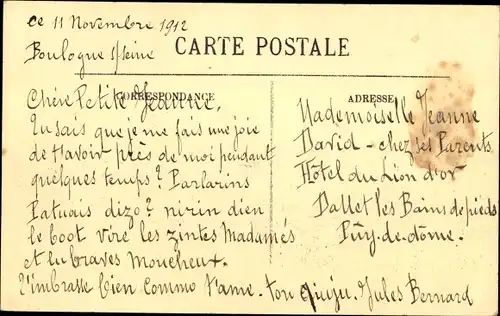 Ce 11 Novembre 1912
Boulogne s/seine
CARTE POSTALE
CORRESPONDANCE
ADRESSE
Chère Petite Jeanne.
Tu sais que je me fais une joie
de t'avoir près de moi pendant
quelques temps? Parlarins
Patuais dizo? nirin dien
le boot vire les zintes Madamés
et lu braves Moucheux.
t'imbrasse bien commo t'ame. ton Jules Bernard
Mademoiselle Jeanne
David - chez ses Parents
Hôtel du Lion d'or
Dallet les Bains de pieds
Puy-de-dôme.